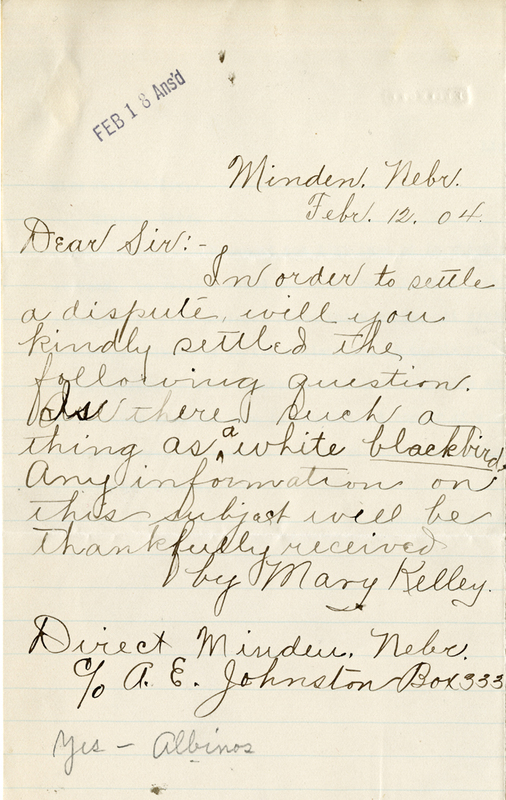 FEB 18 Ans'd
Minden. Nebr.
Febr. 12. 04.
Dear Sir:-
In order to settle
a dispute, will you
kindly settled the
following question.
Is there such a
thing as a white blackbird.
Any information on
this subject will be
thankfully received
by Mary Kelley.
Direct Minden. Nebr.
c/o A. E. Johnston Box 333
Yes - Albinos